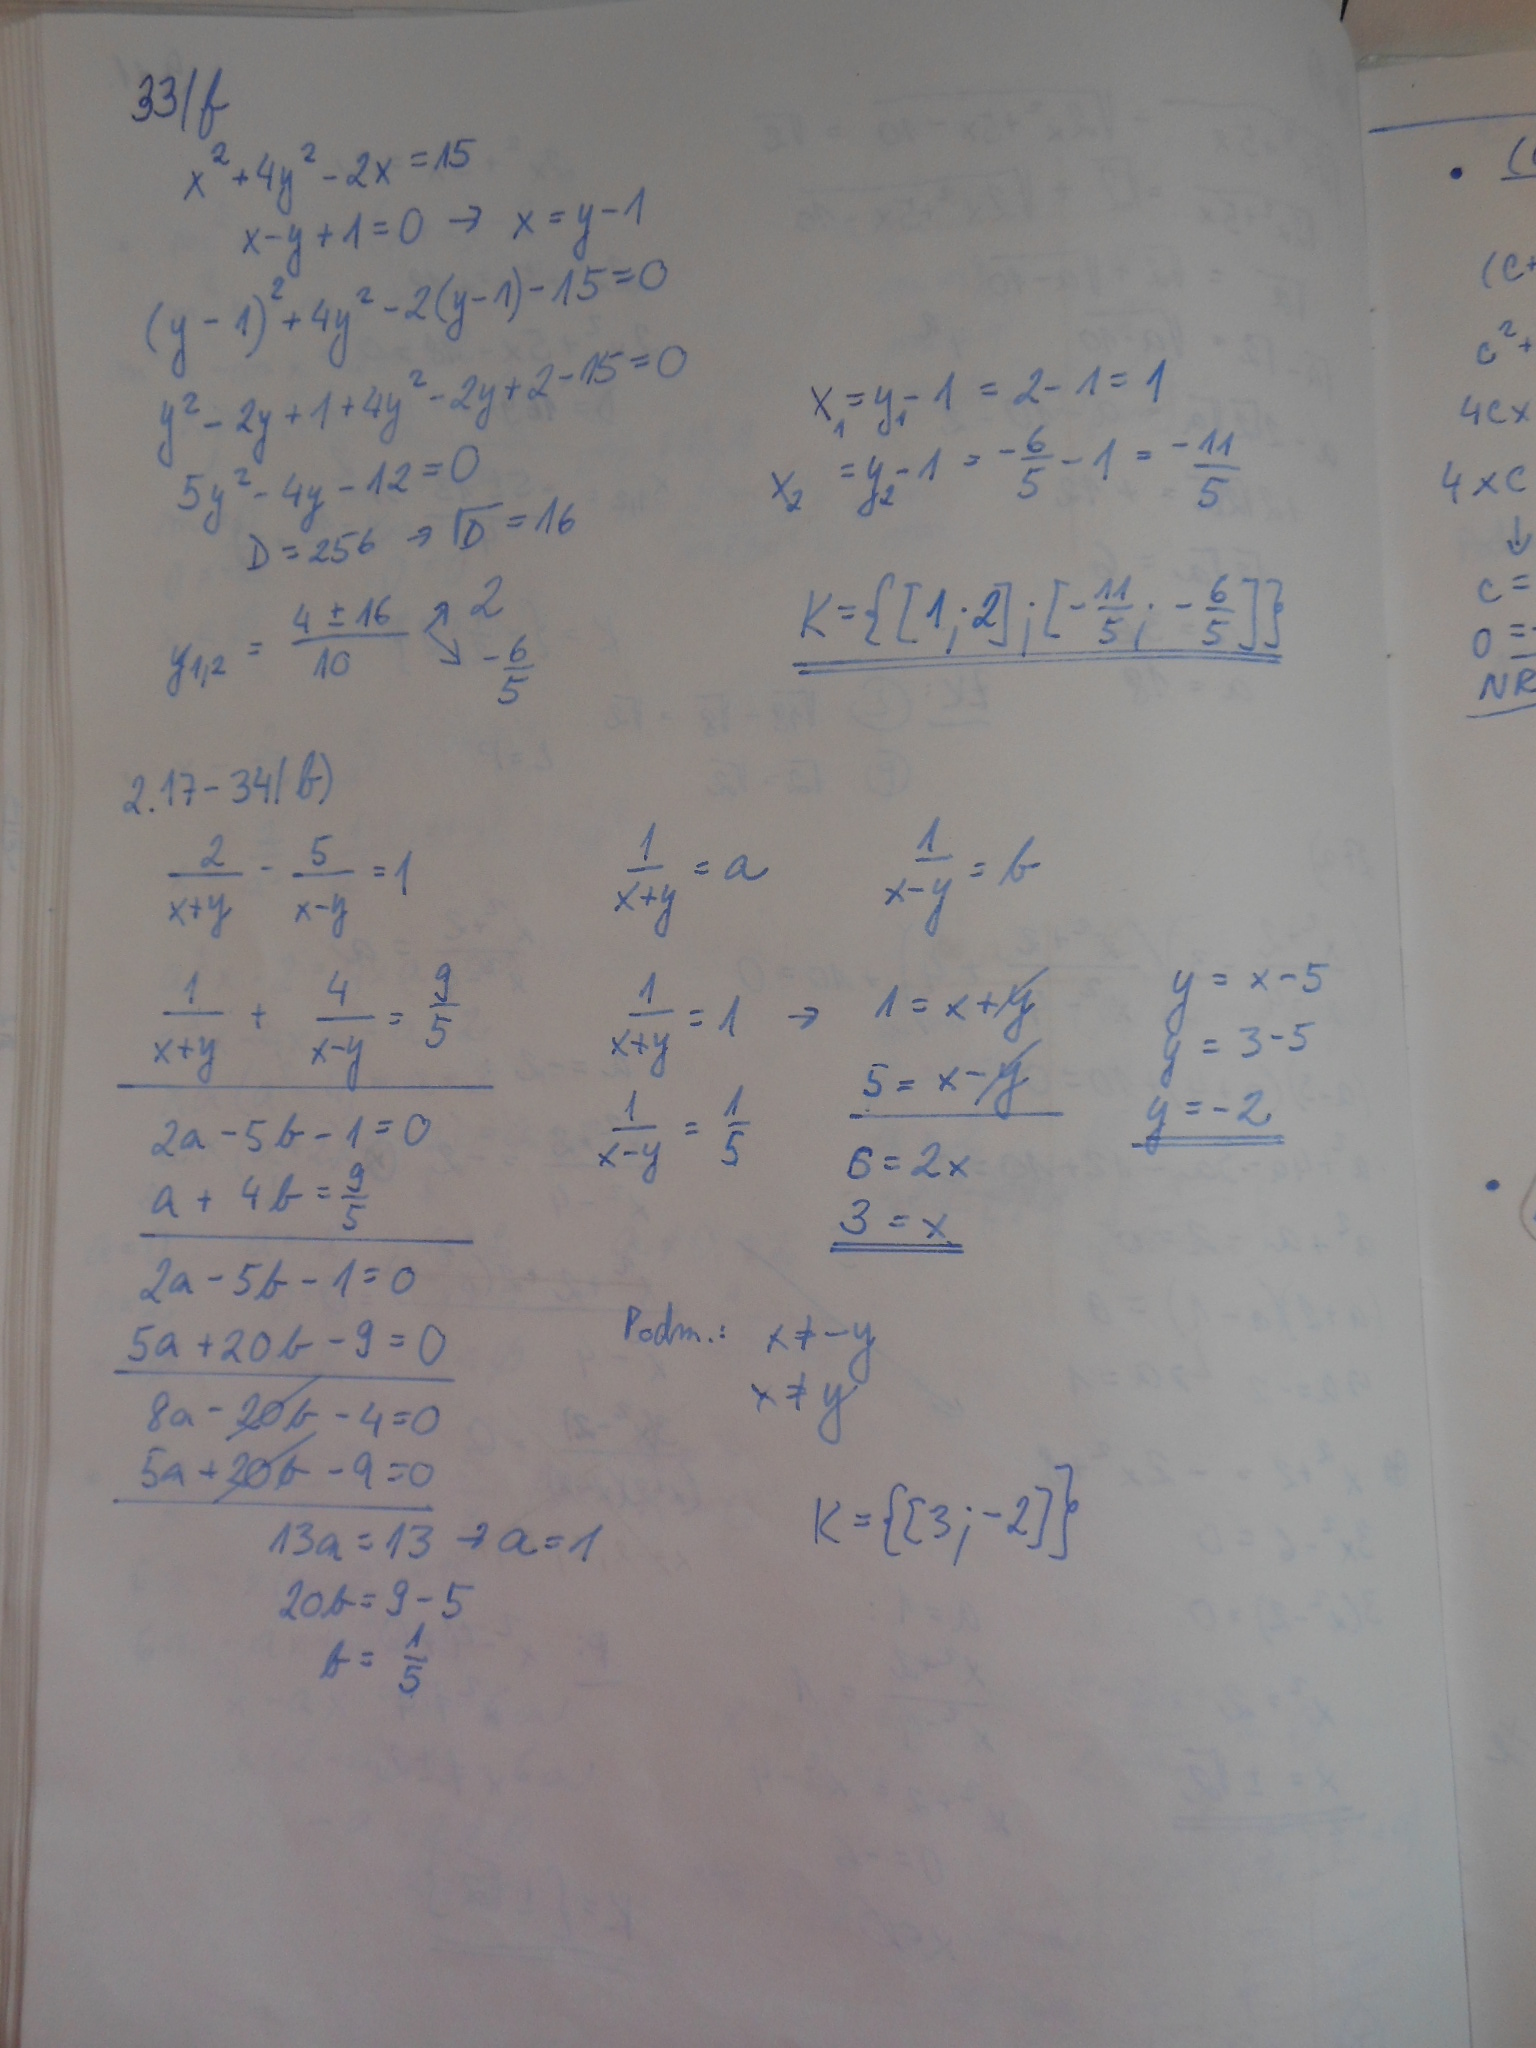 33/b
x² + 4y² - 2x = 15
x - y + 1 = 0 → x = y - 1
(y - 1)² + 4y² - 2(y - 1) - 15 = 0
y² - 2y + 1 + 4y² - 2y + 2 - 15 = 0
5y² - 4y - 12 = 0
D = 256 → √D = 16
y₁,₂ = (4 ± 16)/10 ↗ 2 ↘ -6/5
x₁ = y₁ - 1 = 2 - 1 = 1
x₂ = y₂ - 1 = -6/5 - 1 = -11/5
K = {[1; 2]; [-11/5; -6/5]}
2.17 - 34/b)
2/(x+y) - 5/(x-y) = 1
1/(x+y) + 4/(x-y) = 9/5
2a - 5b - 1 = 0
a + 4b = 9/5
2a - 5b - 1 = 0
5a + 20b - 9 = 0
8a - 20b - 4 = 0
5a + 20b - 9 = 0
13a = 13 → a = 1
20b = 9 - 5
b = 1/5
1/(x+y) = a 1/(x-y) = b
1/(x+y) = 1 → 1 = x + y
1/(x-y) = 1/5 5 = x - y
6 = 2x
3 = x
y = x - 5
y = 3 - 5
y = -2
Podm.: x ≠ -y
x ≠ y
K = {[3; -2]}
(c+
c² +
4cx
4xc
↓
c =
0 =
NR